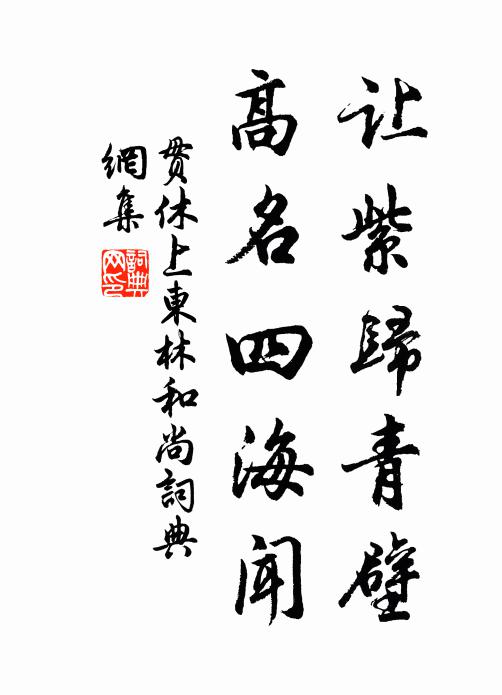 让紫歸青壁
高名四海闻
贯休上東林和尚詞典
網集
詞典网印